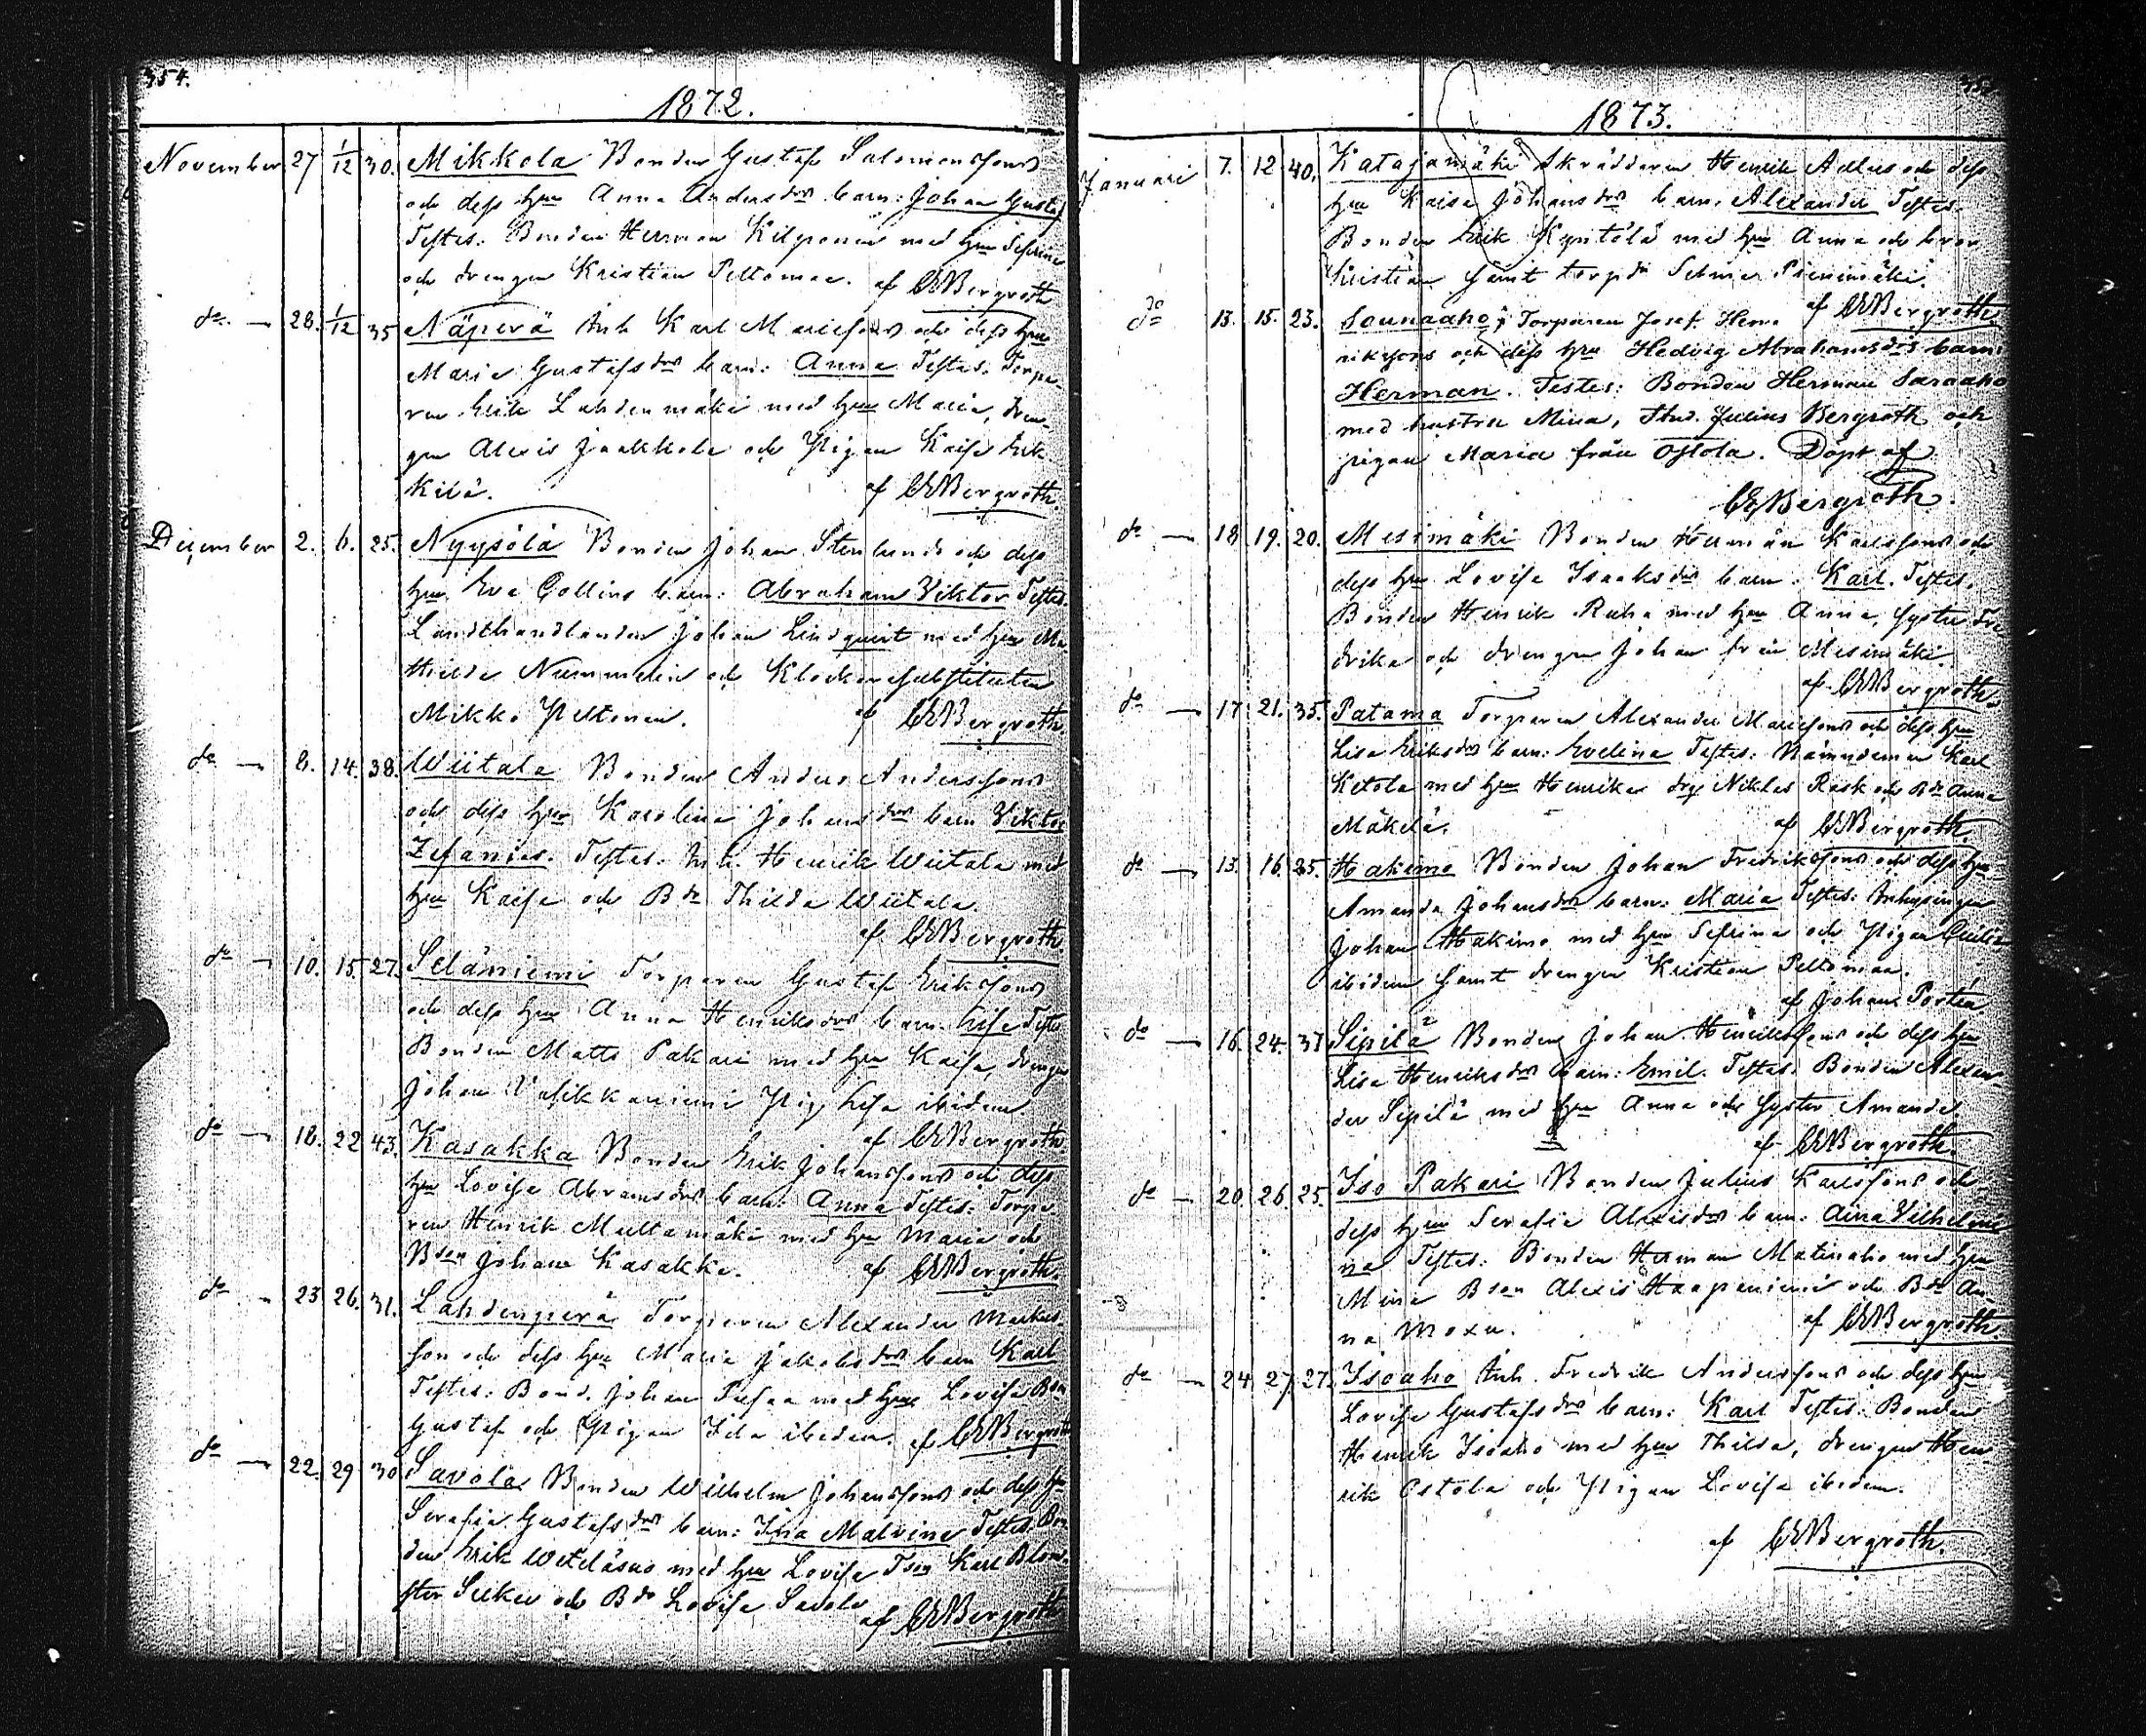 354.
1872.
November 27 1/12 30. Mikkola Bonden Gustaf Salomonssons
och dess hru Anna Andersdrs barn: Johan Gustaf
Testes: Bonden Herman Kilponen med hru Sefrina
och drengen Kristian Peltomaa. af CEBergroth
do — 28. 1/12 35 Näperä Inh Karl Mariessons och dess hru
Maria Gustafsdrs barn: Anna Testes: Torpa-
ren Erik Lahdenmäki med hru Maria, dren-
gen Alexis Jaakkola och Pigan Kaisa Erk-
kilä. af CEBergroth.
December 2. 6. 25. Nyysölä Bonden Johan Stenlunds och dess
hru Eva Collins barn: Abraham Viktor Testes.
Landthandlanden Johan Lindqvist med hru Ma-
thilda Nummelin och Klockaresubstituten
Mikko Peltonen. af CEBergroth.
do — 8. 14. 38. Wiitala Bonden Anders Anderssons
och dess hru Karolina Johansdrs barn Viktor
Zefanias. Testes. Inh. Henrik Wiitala med
hru Kaisa och Bdr Thilda Wiitala.
af CEBergroth
do — 10. 15. 27. Selänniemi Torparen Gustaf Erikssons
och dess hru Anna Henriksdrs barn. Lisa Testes
Bonden Matts Pakari med hru Kaisa, drengen
Johan Vasikkaniemi Pig Lisa ibidem
af CEBergroth.
do — 18. 22 43. Kasakka Bonden Erik Johanssons och dess
hru Lovisa Abramsdrs barn: Anna Testes: Torpa-
ren Henrik Multamäki med hru Maria och
Bson Johan Kasakka. af CEBergroth.
do — 23 26. 31. Lahdenperä Torparen Alexander Markus-
son och dess hru Maria Jakobsdrs barn Karl
Testes: Bond. Johan Pesaa med hru Lovisa Bson
Gustaf och Pigan Ida ibidem. af CEBergroth
do — 22. 29 30 Savola Bonden Wilhelm Johanssons och dess hru
Serafia Gustafsdrs barn: Ina Malvina Testes: Bon-
den Erik Weteläsuo med hru Lovisa Tson Karl Blom-
ster och Bdr Lovisa Savola
af CEBergroth
1873.
Januari 7. 12 40. Katajamäki Skräddaren Henrik Adlers och dess
hru Kaisa Johansdrs barn. Alexander Testes.
Bonden Erik Kyntölä med hru Anna och bror
Kristian samt torpdr Selma Pienimäki.
af CEBergroth.
do 13. 15. 23. Sounaaho; Torparen Josef Hen-
rikssons och dess hru Hedvig Abrahamsdrs barn:
Herman. Testes: Bonden Herman Saraaho
med hustru Mina, Stud. Julius Bergroth och
pigan Maria från Ostola. Döpt af
CEBergroth.
do — 18 19. 20. Mesimäki Bonden Herman Karlssons och
dess hru Lovisa Isaksdrs barn. Karl. Testes.
Bonden Henrik Ruha med hru Anna, syster Fre-
drika och drengen Johan från Mesimäki.
af CEBergroth.
do — 17 21. 35. Patama Torparen Alexander Mariessons och dess hru
Lisa Eriksdrs barn: Evelina Testes: Nämndeman Karl
Ketola med hru Henrika drg Niklas Rask och Bdr Anna
Mäkelä. af CEBergroth.
do — 13. 16. 25. Hakimo Bonden Johan Fredrikssons och dess hru
Amanda Johansdrs barn: Maria Testes: Inhysingen
Johan Hakimo med hru Sefrina och Pigan Cecilia
ibidem samt drengen Kristian Peltomaa.
af Johan Portén
do — 16. 24. 37 Sipilä Bonden Johan Henrikssons och dess hru
Lisa Henriksdrs barn: Emil. Testes. Bonden Alexan-
der Sipilä med hru Anna och syster Amanda
af CEBergroth.
do — 20. 26. 25. Iso Pakari Bonden Julius Karlssons och
dess hru Serafia Alexisdrs barn: Aina Vilhelmi-
na Testes: Bonden Herman Matinaho med hru
Mina Bson Alexis Haapaniemi och Bdr An-
na Moxu. af CEBergroth.
do — 24 27. 27. Isoaho Inh. Fredrik Anderssons och dess hru
Lovisa Gustafsdrs barn: Karl Testes: Bonden
Henrik Isoaho med hru Thilda, drengen Hen-
rik Ostola och Pigan Lovisa ibidem.
af CEBergroth.